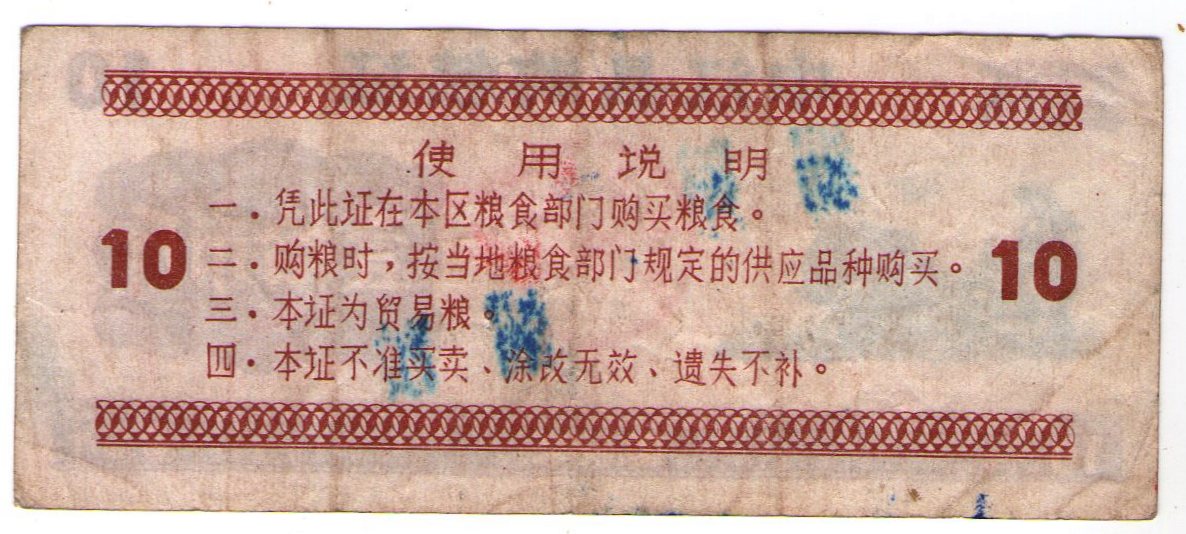 使用说明
一．凭此证在本区粮食部门购买粮食。
10 二．购粮时，按当地粮食部门规定的供应品种购买。 10
三．本证为贸易粮。
四．本证不准买卖、涂改无效、遗失不补。